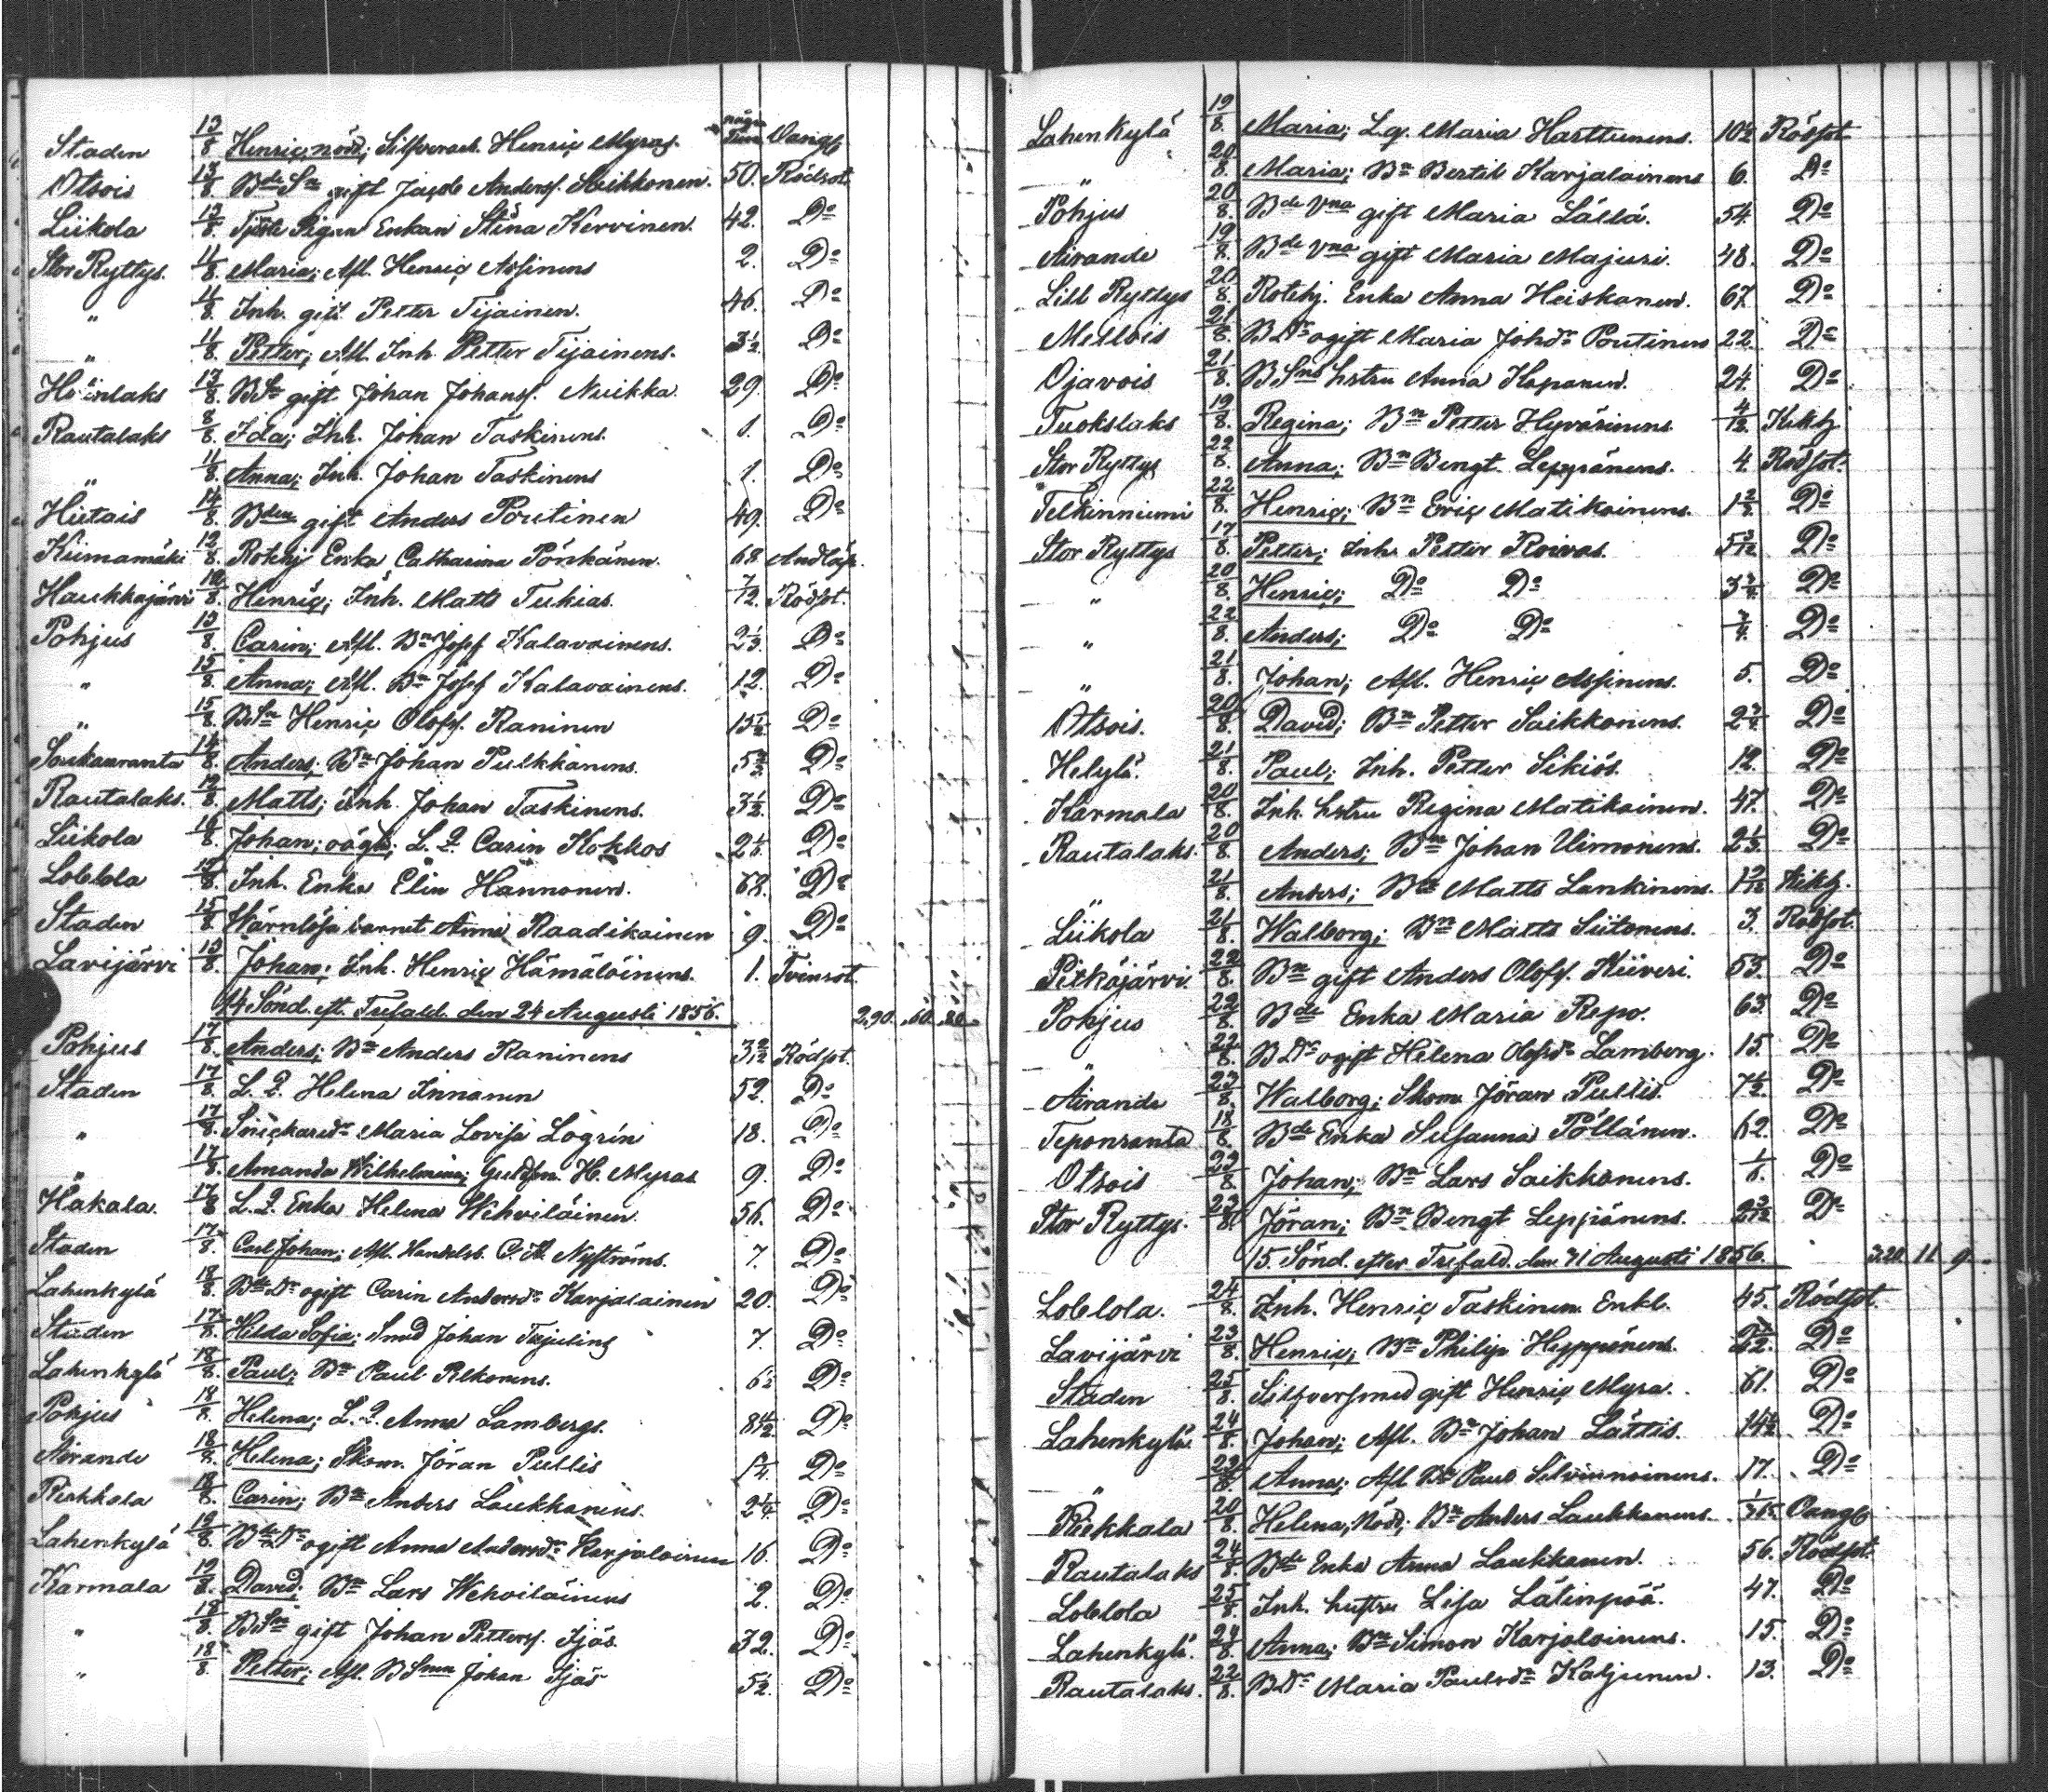 Staden 13/8 Henric, nöd; Silfverarb. Henric Myras. några Tim Vangb
Otsois 13/8 Bde Sn gift Jacob Anderss. Saikkonen. 50. Rödsot.
Liikola 13/8 Enkan Stina Kervinen. 42. Do
Stor Ryttys. 11/8 Maria; Afl. Henric Assinens 2. Do
" 11/8 Inh. gift Petter Tijainen. 46. Do
" 11/8 Petter; Afl. Inh. Petter Tijainens. 3½. Do
13/8 BSn gift Johan Johanss. Nuikka 29. Do
Rautalaks 8/8 Ida; Inh. Johan Taskinens. 1. Do
" 11/8 Anna; Inh. Johan Taskinens 1. Do
Hietais 14/8 Bden gift Anders Poutinen 49. Do
Kiimamäki 12/8 Rotehj Enka Catharina Pönkänen. 68
Haukkajärvi 12/8 Henric; Inh. Matts Tukias. 7/12. Rödsot.
Pohjus 13/8 Carin; Afl. Bn Josef Kalavainens. 2⅓. Do
" 15/8 Anna; Afl. Bn Josef Kalavainens. 12. Do
" 15/8 BSn Henric Olofss. Raninen 15½ Do
Soukanranta 14/8 Anders; Bn Johan Pulkkanens. Do
Rautalaks. 12/8 Matts; Inh. Johan Taskinens. 3½. Do
Liikola 16/8 Johan; oägt; L.Q. Carin Kokkos 2⅙. Do
Loblola 15/8 Inh. Enka Elin Hannonen. 68. Do
Staden 15/8 Wärnlösa barnet Anna Raadikainen 9. Do
Lavijärvi 13/8 Johan; Inh. Henric Hämäläinens. 1. Tvinsot.
14 Sönd. eft. Trefald. den 24 Augusti 1856. 2.90. .60. .80.
Pohjus 17/8 Anders; Bn Anders Raninens Rödsot.
Staden 17/8 L.Q. Helena Innanen 52. Do
" 17/8 Snickareds Maria Lovisa Lögrén 18. Do
" 17/8 Amanda Wilhelmina; Guldsm. H. Myras 9. Do
Häkala. 17/8 L.Q. Enka Helena Wehviläinen 56. Do
Staden 17/8 Carl Johan; Afl. Handelsb. Nyströms. 7. Do
Lahenkylä 18/8 Bde Dr ogift Carin Andersdr Karjalainen 20. Do
Staden 17/8 Hilda Sofia; Smed Johan 7. Do
Lahenkylä 18/8 Paul; Bn Paul Pelkonens. 6½ Do
Pohjus 18/8 Helena; L.Q. Anna Lambergs. Do
Airande 18/8 Helena; Skom. Jöran Pullis Do
Riekkala 18/8 Carin; Bn Anders Laukkanens. 2¼. Do
Lahenkylä 19/8 Bde Dr ogift Anna Andersdr Karjalainen 16. Do
Karmala 19/8 David; Bn Lars Wehviläinens 2. Do
" 18/8 BSn gift Johan Petterss. Ijäs. 32. Do
" 18/8 Petter; Afl. BSnn Johan Ijäs 5½. Do
Lahenkylä 19/8. Maria; L.Q. Maria Harttunens. 10½ Rödsot
" 20/8. Maria; Bn Bertil Karjalainens 6. Do
Pohjus 20/8. Bde Vna gift Maria Lällä. 54. Do
Airande 19/8. Bde Vna gift Maria Majuri. 48. Do
Lill Ryttys 20/8. Rotehj. Enka Anna Heiskanen. 67. Do
Mellois 21/8. BDr ogift Maria Johdr Poutinens 22. Do
Ojavois 21/8. BSns hstru Anna Koponen. 24. Do
Tuokslaks 19/8. Regina; Bn Petter Hyvärinens 4/12. Kikh
Stor Ryttys 22/8. Anna; Bn Bengt. Leppänens. 4. Rödsot.
Telkinniemi 22/8. Henric; Bn Eric Matikainens. Do
Stor Ryttys 17/8. Petter; Inh. Petter Roivas. Do
" 20/8. Henric; Do Do Do
" 22/8. Anders; Do Do Do
" 21/8. Johan; Afl. Henric Assinens. 5. Do
Otsois. 20/8. David; Bn Petter Saikkonens. Do
Helylä. 21/8. Paul; Inh. Petter Sikiös. 12. Do
Karmala 20/8. Inh. hstru Regina Matikainen. 47. Do
Rautalaks. 20/8. Anders; Bn Johan Uimonens. 2⅓. Do
" 21/8. Anders; Bn Matts Lankinens. Kikh.
Liikola 21/8. Walborg; Bn Matts Siitonens. 3. Rödsot.
Pitkäjärvi. 22/8. Bn gift Anders Olofss. Kiiveri. 53. Do
Pohjus 22/8. Bde Enka Maria Repo. 63. Do
" 22/8. BDr ogift Helena Olofsdr Lamberg. 15. Do
Airande 23/8. Walborg; Skom. Jöran Pullis. 7½. Do
Teponranta 18/8. Bde Enka Susanna Pöllänen. 62. Do
Otsois 23/8. Johan; Bn Lars Saikkonens. 1/6. Do
Stor Ryttys. 23/8. Jöran; Bn Bengt Leppänens. Do
15. Sönd. efter Trefald. den 31 Augusti 1856. 3.20. 11. 9.
Loblola. 24/8. Inh. Henric Taskinen Enkl. 45. Rödsot.
Lavijärvi 23/8. Henric; Bn Philip Hyppönens. Do
Staden 25/8. Silfversmed gift Henric Myra. 61. Do
Lahenkylä. 24/8. Johan; Afl. Bn Johan Lättis. 14½. Do
" 22/8. Anna; Afl Bn Paul Silvennoinens. 17. Do
Riekkala 20/8. Helena, Nöd; Bn Anders Laukkanens. 1/365 Vangb
Rautalaks 24/8. Bde Enka Anna Laukkanen. 56. Rödsot.
Loblola 25/8. Inh. hustru Lisa Lätinpää. 47. Do
Lahenkylä. 24/8. Anna; Bn Simon Karjalainens. 15. Do
Rautalaks. 22/8. BDr Maria Paulsdr Kaljunen. 13. Do